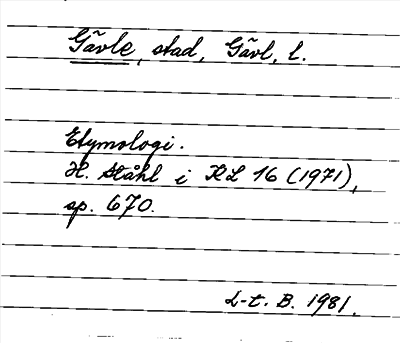 Gävle, stad, Gävl, l.
Etymologi.
H. Ståhl i KL 16 (1971),
sp. 670.
L-t. B. 1981.